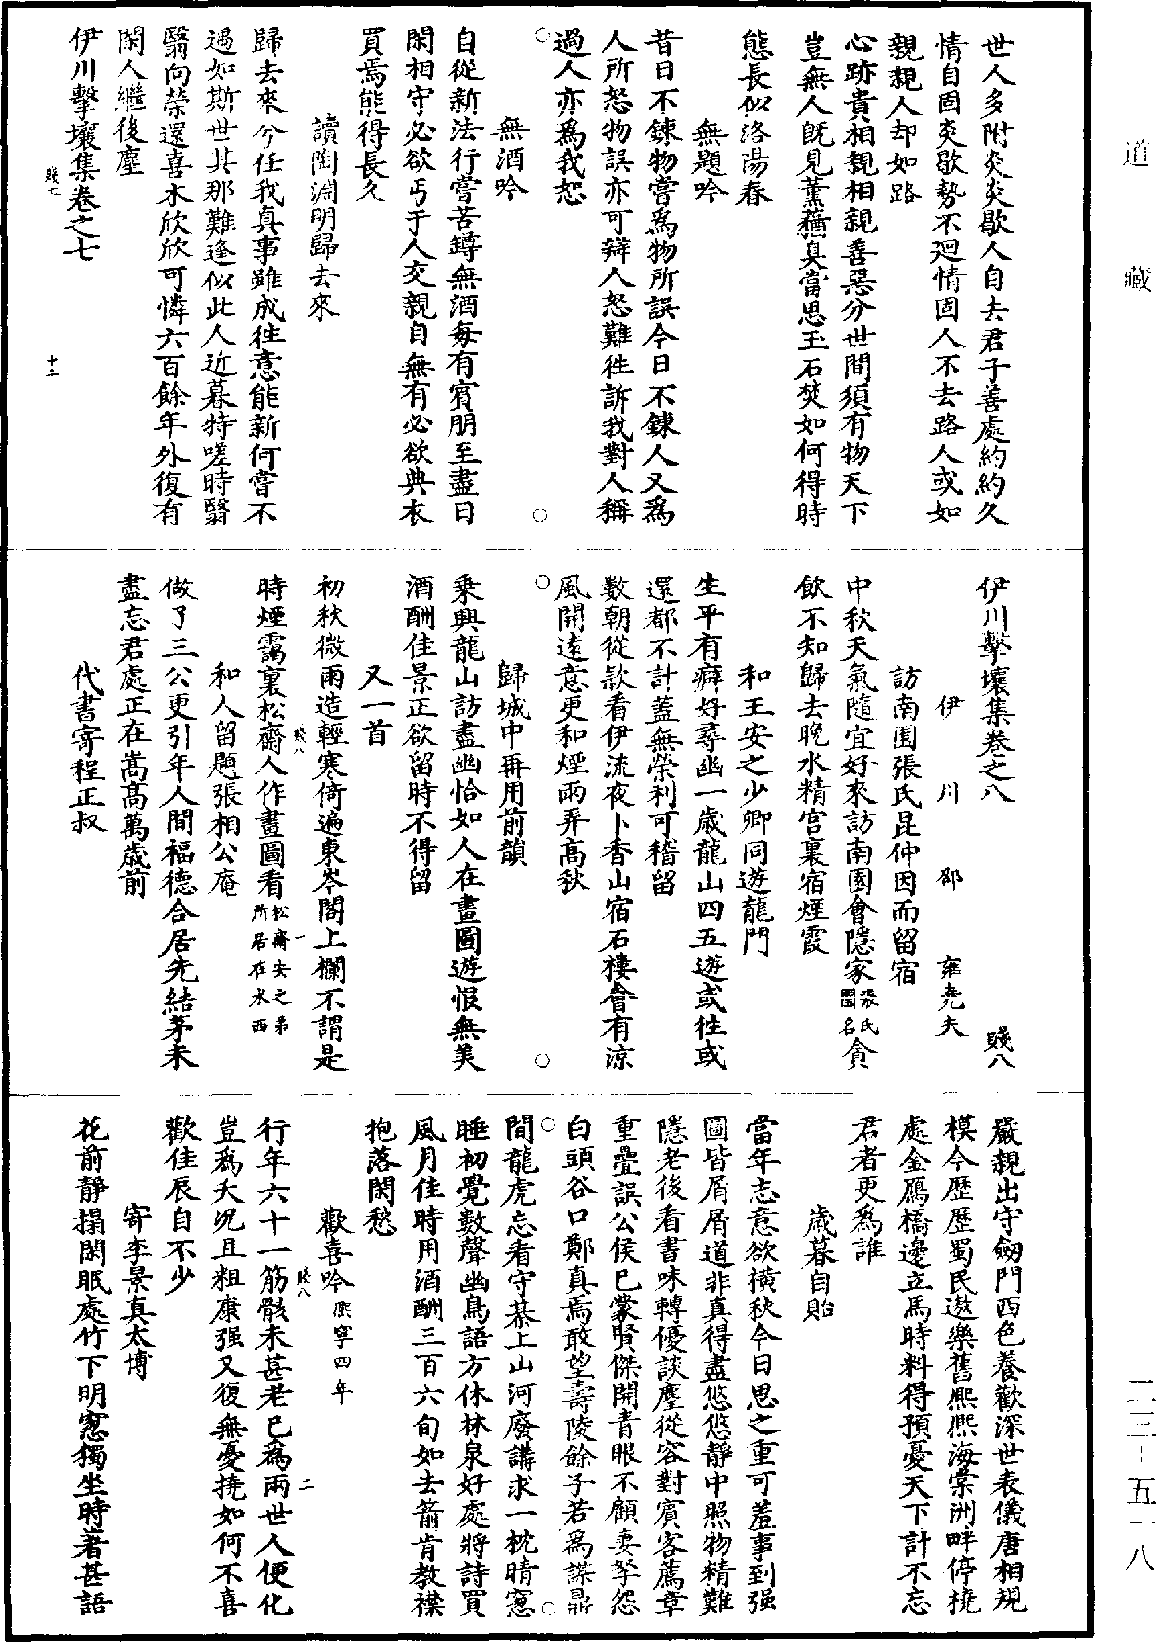 世人多附炎炎歇人自去君子善處約約久
情自固炎歇勢不迴情固人不去路人或如
親親人却如路
心跡貴相親相親善惡分世間須有物天下
豈無人旣見薰蕕臭當思玉石焚如何得時
態長似洛陽春
無題吟
昔日不鍊物嘗爲物所誤今日不鍊人又爲
人所怒物誤亦可辯人怒難徃訴我對人稱
過人亦爲我恕
無酒吟
自從新法行嘗苦罇無酒每有賓朋至盡日
閑相守必欲丐于人交親自無有必欲典衣
買焉能得長久
讀陶淵明歸去來
歸去來兮任我真事雖成徃意能新何嘗不
遇如斯世其那難逢似此人近暮特嗟時翳
翳向榮還喜木欣欣可憐六百餘年外復有
閑人繼後塵
伊川擊壤集卷之七
賤七
十二
伊川擊壤集卷之八
賤八
伊川邵雍堯夫
訪南園張氏昆仲因而留宿
中秋天氣隨宜好來訪南園會隱家張氏園名貪
飲不知歸去晚水精宮裏宿煙霞
和王安之少卿同遊龍門
生平有癖好尋幽一歲龍山四五遊或徃或
還都不計蓋無榮利可稽留
數朝從款看伊流夜卜香山宿石樓會有涼
風開遠意更和煙雨弄高秋
歸城中再用前韻
乘興龍山訪盡幽恰如人在畫圖遊恨無美
酒酬佳景正欲留時不得留
又一首
初秋微雨造輕寒倚遍東岑閣上欄不謂是
時煙靄裏松齋人作畫圖看松齋安之弟所居在水西
賤八
一
和人留題張相公庵
做了三公更引年人間福德合居先結茅未
盡忘君處正在嵩高萬歲前
代書寄程正叔
嚴親出守劒門西色養歡深世表儀唐相規
模今歷歷蜀民遨樂舊熙熙海棠洲畔停橈
處金鴈橋邊立馬時料得預憂天下計不忘
君者更爲誰
歲暮自貽
當年志意欲橫秋今日思之重可羞事到强
圖皆屑屑道非真得盡悠悠靜中照物精難
隱老後看書味轉優談麈從容對賓客薦章
重疊誤公侯已蒙賢傑開青眼不顧妻孥怨
白頭谷口鄭真焉敢望壽陵餘子若爲謀鼎
間龍虎忘看守棊上山河廢講求一枕晴窻
睡初覺數聲幽鳥語方休林泉好處將詩買
風月佳時用酒酬三百六旬如去箭肯教襟
抱落閑愁
歡喜吟熙寧四年
行年六十一筋骸未甚老已為兩世人便化
賤八
二
豈爲夭況且粗康强又復無憂撓如何不喜
歡佳辰自不少
寄李景真太博
花前靜榻閑眠處竹下明窻獨坐時著甚語
道藏
二三-五一八